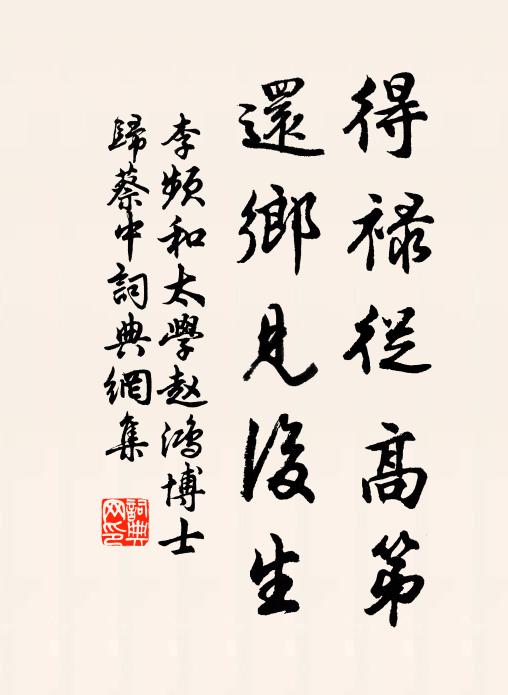 得禄從高第
還鄉見後生
李频和太學赵鴻博士
歸蔡中詞典網集
詞典
网印